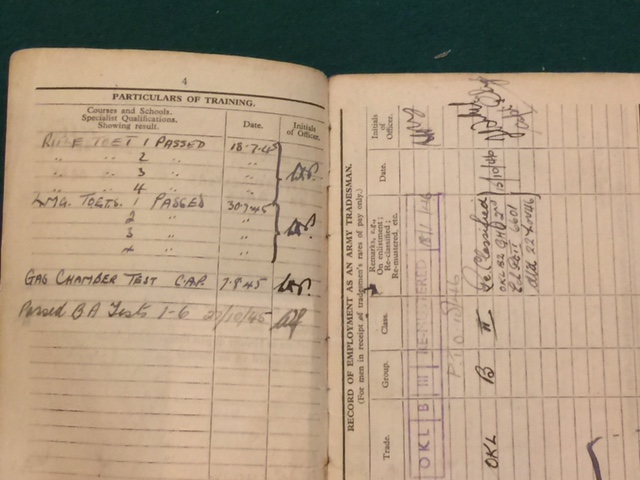 4
PARTICULARS OF TRAINING.
Courses and Schools.
Specialist Qualifications.
Showing result.
Date.
Initials
of Officer.
RIFLE TOET 1 PASSED 18.7.45
" " 2 " "
" " 3 " "
" " 4 " "
LMG. TOETS. 1 PASSED 30.7.45
2 " "
3 " "
4 " "
GAS CHAMBER TEST C.A.P. 7.8.45
Passed BA Tests 1-6 27/10/45
RECORD OF EMPLOYMENT AS AN ARMY TRADESMAN.
(For men in receipt of tradesmen's rates of pay only.)
Trade.
Group.
Class.
Remarks, e.g.,
On enlistment;
Re-classified;
Re-mustered, etc.
Date.
Initials
of
Officer.
OKL B III RE-MUSTERED
OKL B II